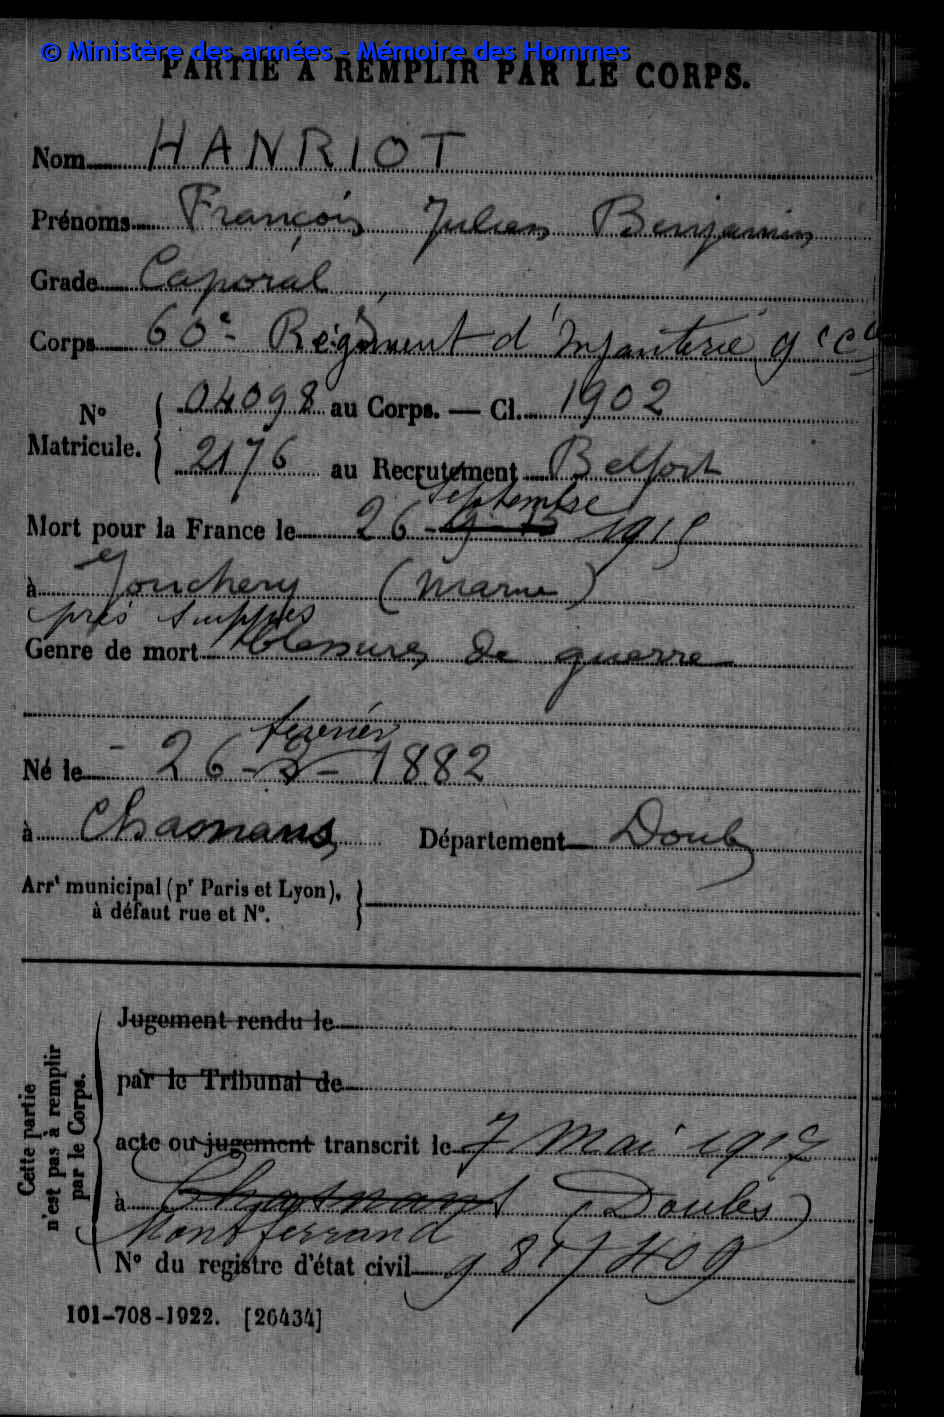 © Ministère des armées - Mémoire des Hommes
PARTIE À REMPLIR PAR LE CORPS.
Nom HANRIOT
Prénoms François Julien Benjamin
Grade Caporal
Corps 60e Régiment d'Infanterie 9e Cie
04098 au Corps. — Cl. 1902
N°
Matricule.
2176 au Recrutement Belfort
Septembre
Mort pour la France le 26 - 9 - 15 1915
à Jonchery (Marne)
près Suippes
Genre de mort blessures de guerre
février
Né le 26 - 2 - 1882
à Chasnans Département Doubs
Arrt municipal (pr Paris et Lyon),
à défaut rue et N°.
Cette partie
n'est pas à remplir
par le Corps.
Jugement rendu le
par le Tribunal de
acte ou jugement transcrit le 7 Mai 1917
à Chasnans (Doubs)
Montferrand
N° du registre d'état civil 9817/409
101-708-1922. [26434]